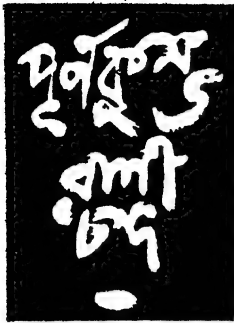 পূর্ণকুম্ভ
রাণী
চন্দ